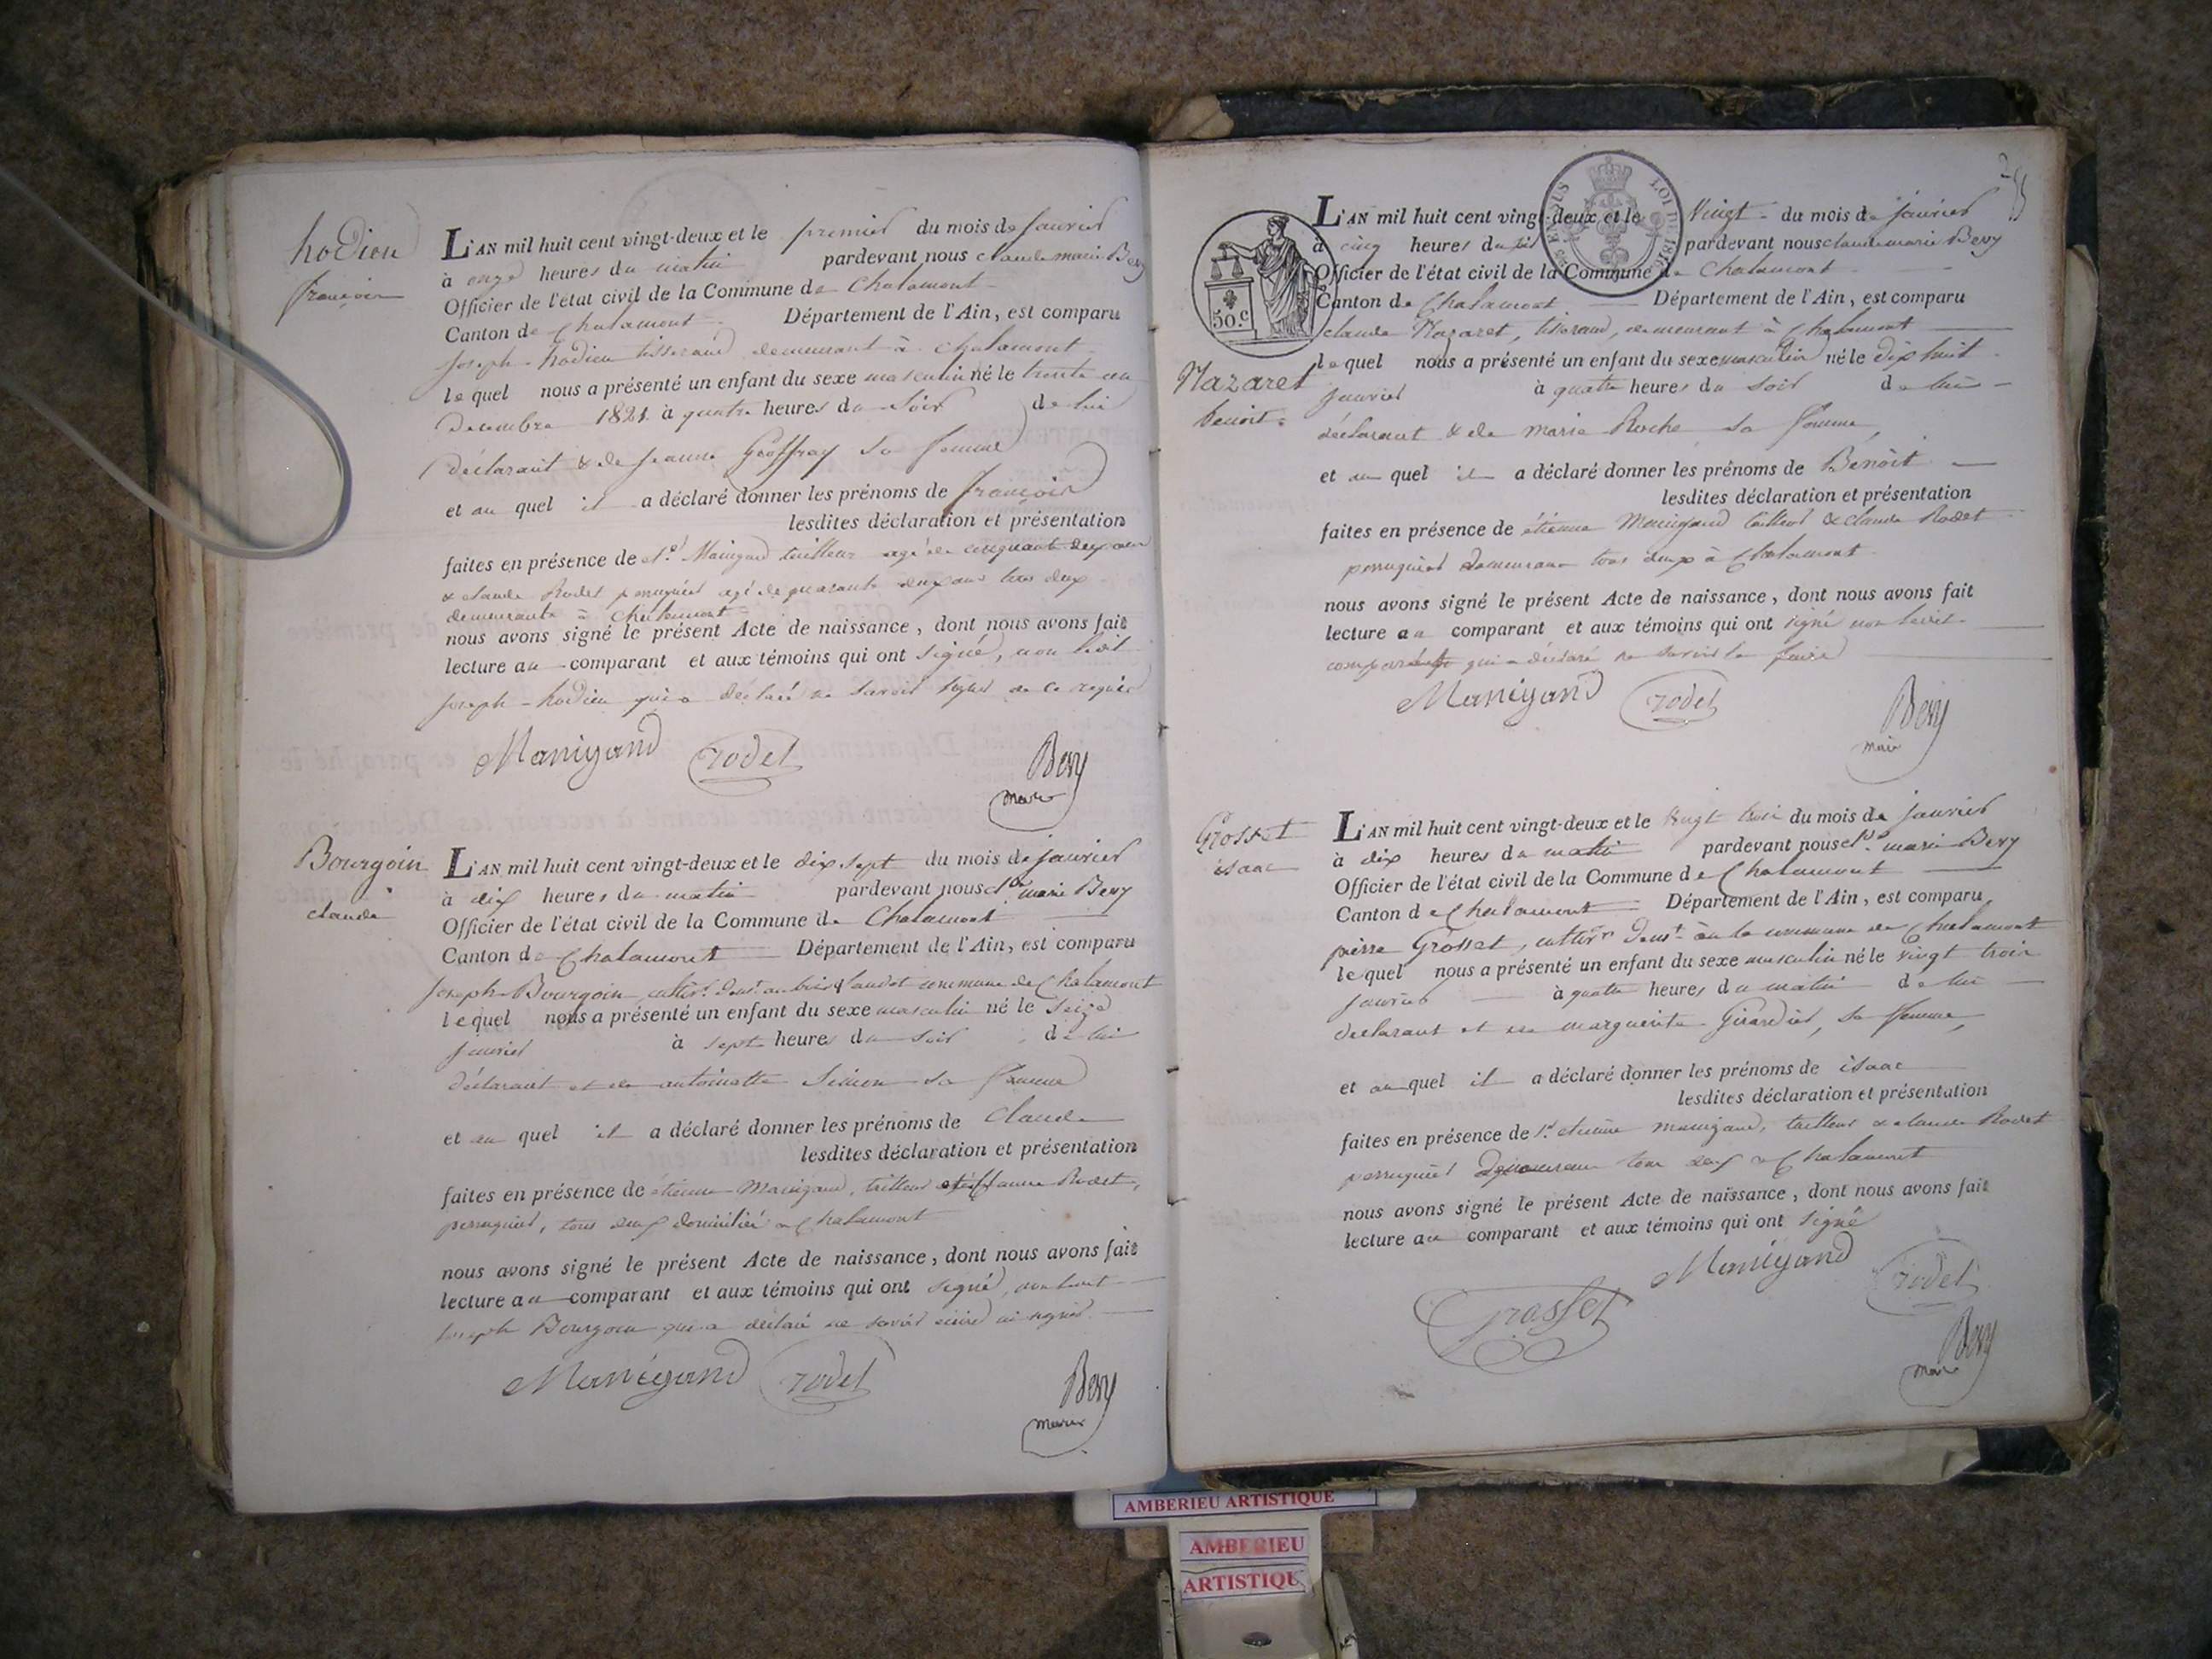 hodieu
françois
L'AN mil huit cent vingt-deux et le premier du mois de janvier
à onze heures du matin pardevant nous claude marie Bevy
Officier de l'état civil de la Commune de Chalamont
Canton de Chalamont Département de l'Ain, est comparu
Joseph hodieu tisserand demeurant à Chalamont
lequel nous a présenté un enfant du sexe masculin né le trente un
Decembre 1821 à quatre heures du Soir de lui
déclarant & de Jeanne Geoffray sa femme
et au quel il a déclaré donner les prénoms de françois
lesdites déclaration et présentation
faites en présence de et.e Manigand tailleur agé de cinquante deux ans
& claude Rodet perruquier agé de quarante deux ans tous deux
demeurants à Chalamont
nous avons signé le présent Acte de naissance, dont nous avons fait
lecture au comparant et aux témoins qui ont signé, non ledit
joseph hodieu qui a déclaré ne savoir signer de ce requis
Manigand rodet Bevy
maire
Bourgoin
claude
L'AN mil huit cent vingt-deux et le dix sept du mois de janvier
à dix heures du matin pardevant nous cl.de marie Bevy
Officier de l'état civil de la Commune de Chalamont
Canton de Chalamont Département de l'Ain, est comparu
Joseph Bourgoin, cultiv.r dem.t au commune de Chalamont
lequel nous a présenté un enfant du sexe masculin né le seize
janvier à sept heures du soir de lui
déclarant et de antoinette Simon sa femme
et au quel il a déclaré donner les prénoms de Claude
lesdites déclaration et présentation
faites en présence de étienne Manigand, tailleur Rodet,
perruquier, tous deux domiciliés à Chalamont
nous avons signé le présent Acte de naissance, dont nous avons fait
lecture au comparant et aux témoins qui ont signé, non ledit
joseph Bourgoin qui a déclaré ne savoir écrire ni signer.
Manigand rodet Bevy
maire
255
50.c
EN SUS
LOI DE 1816
L'AN mil huit cent vingt-deux et le Vingt du mois de janvier
à cinq heures du soir pardevant nous claude marie Bevy
Officier de l'état civil de la Commune de Chalamont
Canton de Chalamont Département de l'Ain, est comparu
claude Nazaret, tisserand, demeurant à Chalamont
Nazaret
benoit
lequel nous a présenté un enfant du sexe masculin né le dix huit
janvier à quatre heures du soir de lui
déclarant & de marie Roche sa femme,
et au quel il a déclaré donner les prénoms de Benoit
lesdites déclaration et présentation
faites en présence de étienne Manigand tailleur & claude Rodet
perruquier demeurans tous deux à Chalamont
nous avons signé le présent Acte de naissance, dont nous avons fait
lecture au comparant et aux témoins qui ont signé non ledit
comparant qui a déclaré ne savoir le faire
Manigand rodet Bevy
maire
Grosset
isaac
L'AN mil huit cent vingt-deux et le vingt trois du mois de janvier
à dix heures du matin pardevant nous cl.de marie Bevy
Officier de l'état civil de la Commune de Chalamont
Canton de Chalamont Département de l'Ain, est comparu
pierre Grosset, cultiv.r dem.t en la commune de Chalamont
lequel nous a présenté un enfant du sexe masculin né le vingt trois
janvier à quatre heures du matin de lui
déclarant et de marguerite Girardier, sa femme,
et au quel il a déclaré donner les prénoms de isaac
lesdites déclaration et présentation
faites en présence de s.r etienne manigand, tailleur & claude Rodet
perruquier demeurans tous deux à Chalamont
nous avons signé le présent Acte de naissance, dont nous avons fait
lecture au comparant et aux témoins qui ont signé
Manigand rodet
Grosset Bevy
maire
AMBERIEU ARTISTIQUE
AMBERIEU
ARTISTIQU